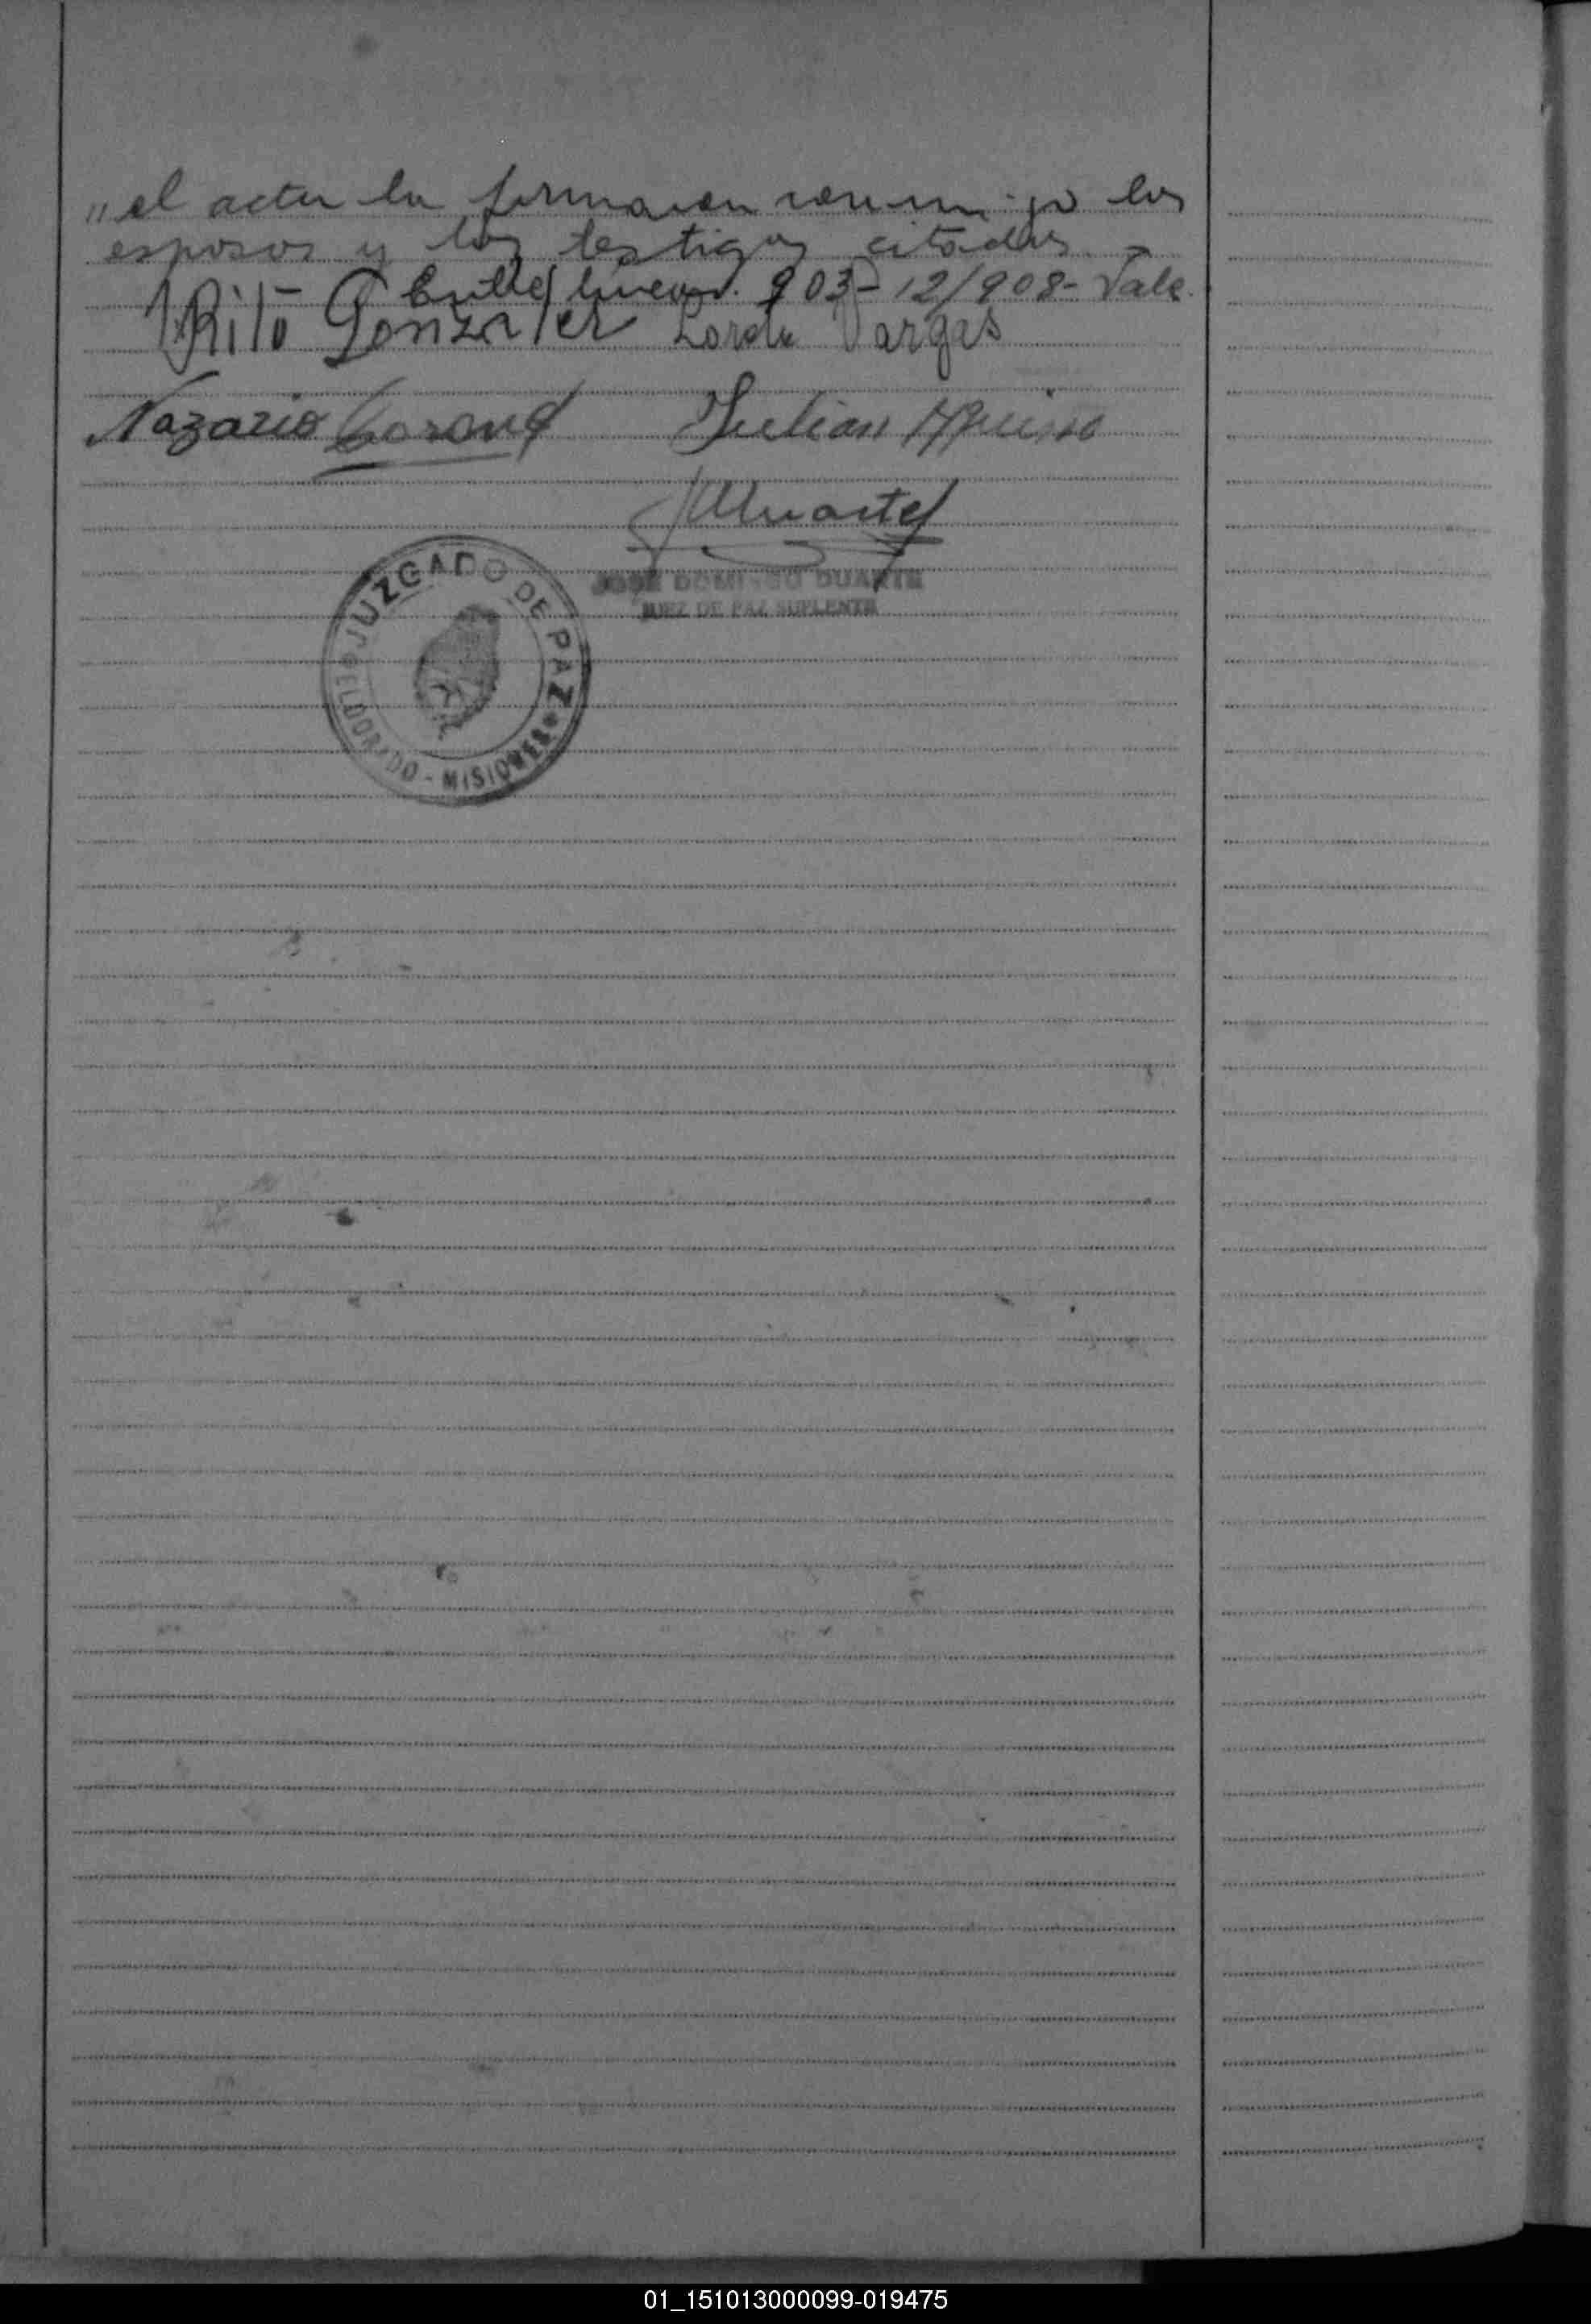 " el acta la firmaron conmigo los
esposos y los testigos citados -
Entre lineas. 903- 12/908- Vale.
Rito Gonzalez Lorda Vargas
Nazario Julian
JDuarte
JOSE DOMINGO DUARTE
JUEZ DE PAZ SUPLENTE
JUZGADO DE PAZ
ELDORADO - MISIONES
01_151013000099-019475